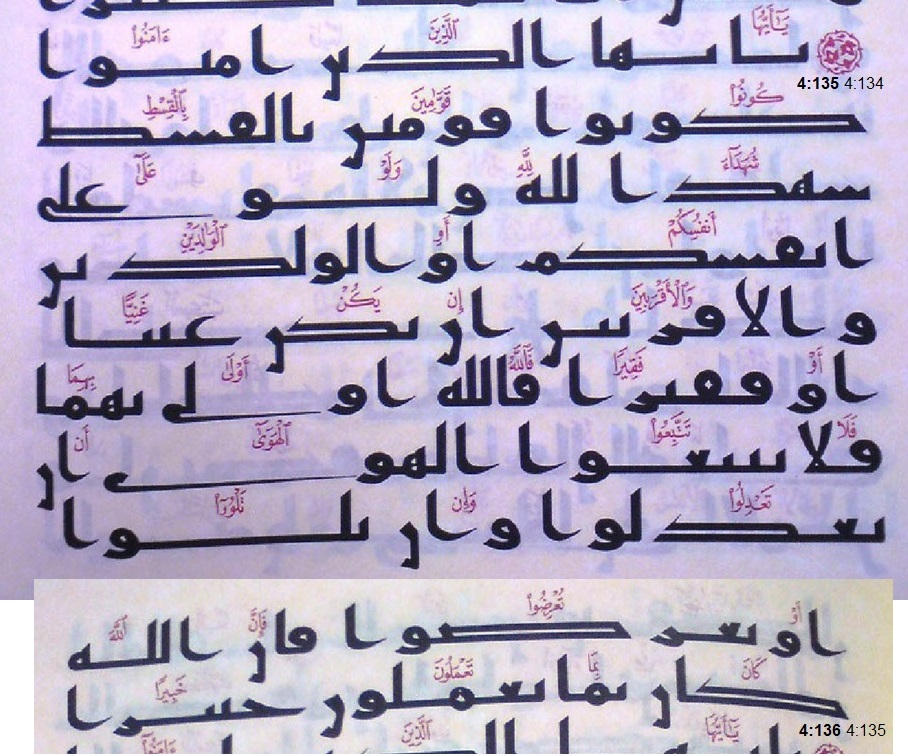 يَٰٓأَيُّهَا ٱلَّذِينَ ءَامَنُوا۟
يايها الذين امنوا
4:135 4:134
كُونُوا۟ قَوَّٰمِينَ بِٱلْقِسْطِ
كونوا قومين بالقسط
شُهَدَآءَ لِلَّهِ وَلَوْ عَلَىٰٓ
شهدا لله ولو على
أَنفُسِكُمْ أَوِ ٱلْوَٰلِدَيْنِ
انفسكم او الولدين
وَٱلْأَقْرَبِينَ إِن يَكُنْ غَنِيًّا
والاقربين ان يكن غنيا
أَوْ فَقِيرًا فَٱللَّهُ أَوْلَىٰ بِهِمَا
او فقيرا فالله اولى بهما
فَلَا تَتَّبِعُوا۟ ٱلْهَوَىٰٓ أَن
فلا تتبعوا الهوى ان
تَعْدِلُوا۟ وَإِن تَلْوُۥٓا۟
تعدلوا وان تلوا
أَوْ تُعْرِضُوا۟ فَإِنَّ ٱللَّهَ
او تعرضوا فان الله
كَانَ بِمَا تَعْمَلُونَ خَبِيرًا
كان بما تعملون خبيرا
4:136 4:135
يَٰٓأَيُّهَا ٱلَّذِينَ ءَامَنُوٓا۟